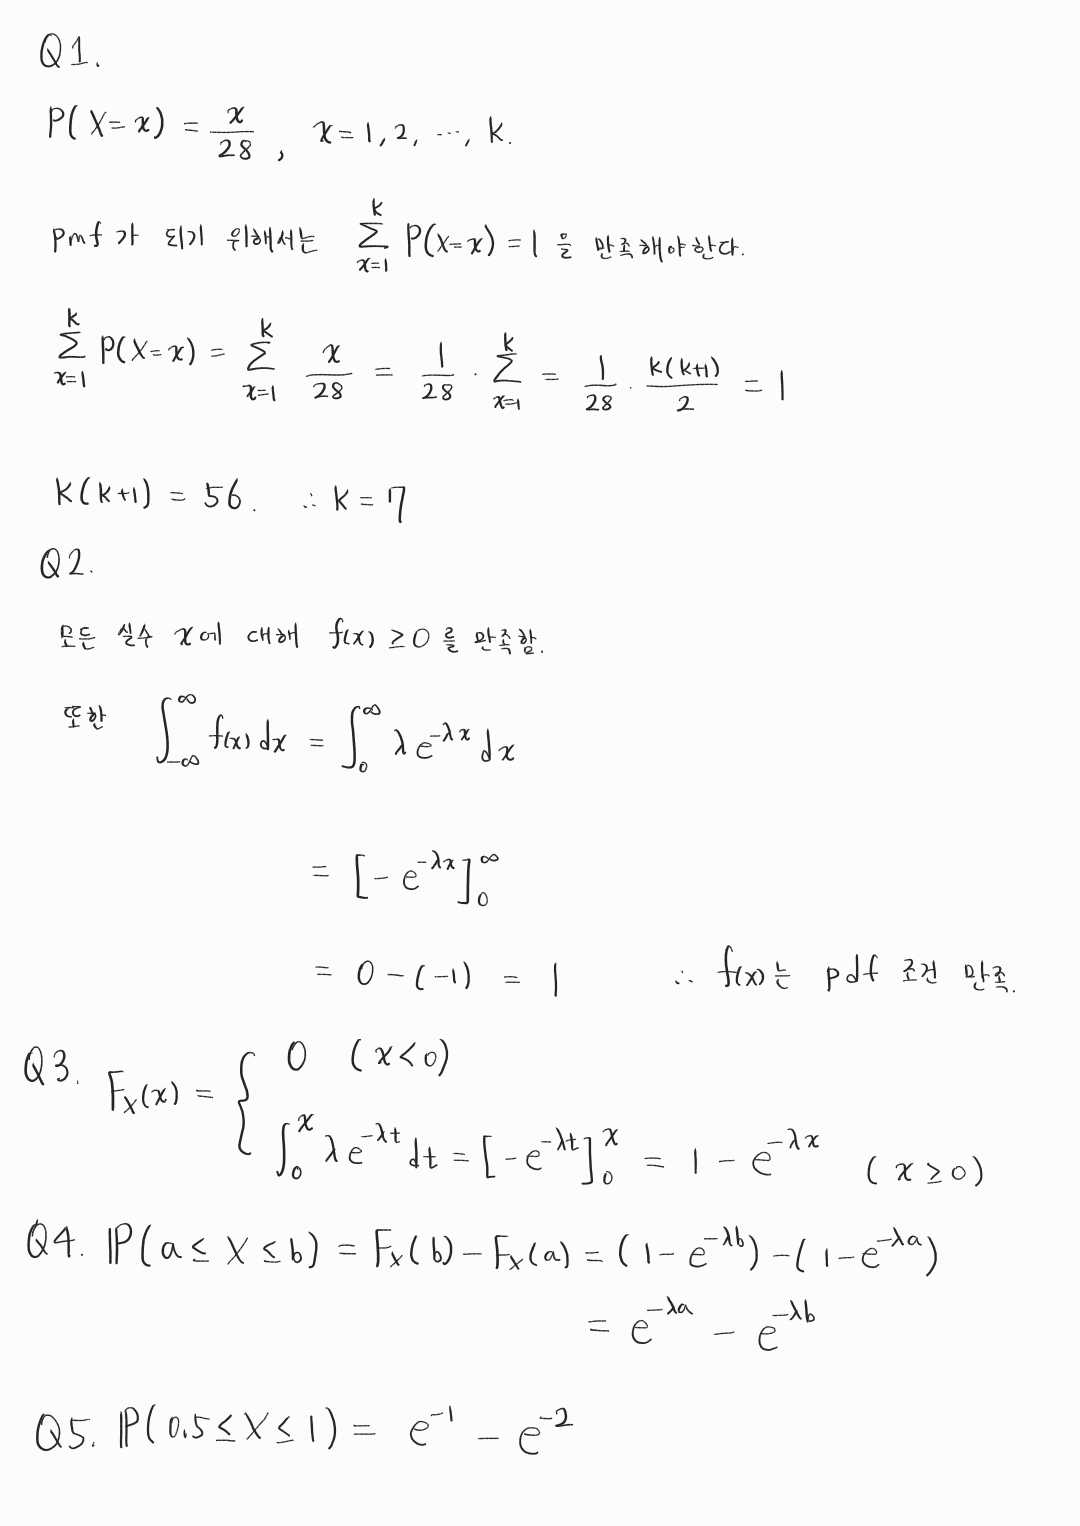 Q1.
P(X=x) = x/28 , x=1,2, ..., k.
pmf가 되기 위해서는 ∑_{x=1}^{k} P(X=x) = 1 을 만족해야한다.
∑_{x=1}^{k} P(X=x) = ∑_{x=1}^{k} x/28 = 1/28 · ∑_{x=1}^{k} = 1/28 · k(k+1)/2 = 1
k(k+1) = 56. ∴ k = 7
Q2.
모든 실수 x에 대해 f(x) ≥ 0 를 만족함.
또한 ∫_{-∞}^{∞} f(x) dx = ∫_{0}^{∞} λ e^{-λx} dx
= [- e^{-λx}]_{0}^{∞}
= 0 - (-1) = 1 ∴ f(x)는 pdf 조건 만족.
Q3. F_X(x) = { 0 (x<0)
∫_{0}^{x} λ e^{-λt} dt = [-e^{-λt}]_{0}^{x} = 1 - e^{-λx} (x ≥ 0)
Q4. ℙ(a ≤ X ≤ b) = F_X(b) - F_X(a) = (1 - e^{-λb}) - (1 - e^{-λa})
= e^{-λa} - e^{-λb}
Q5. ℙ(0.5 ≤ X ≤ 1) = e^{-1} - e^{-2}